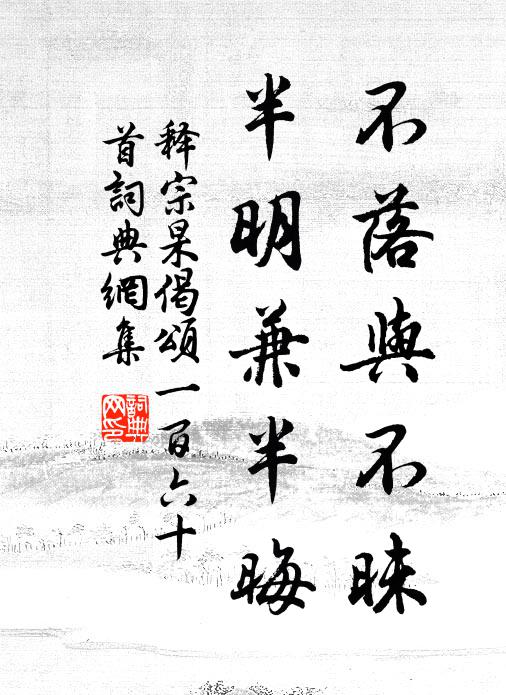 不落與不昧
半明兼半晦
释宗杲偈頌一百六十
首詞典網集
詞典网印